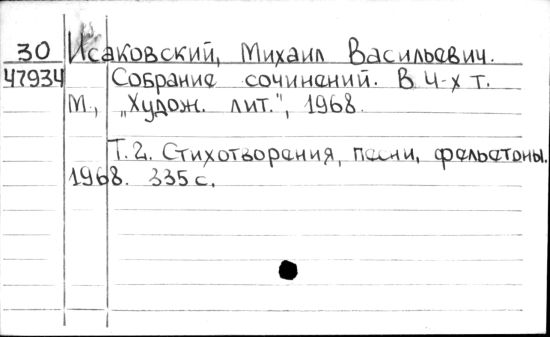 30 Исаковский, Михаил Васильевич.
47934 Собрание сочинений. В 4-х т.
М., „Худож. лит.", 1968.
Т. 2. Стихотворения, песни, фельетоны.
1968. 335 с.